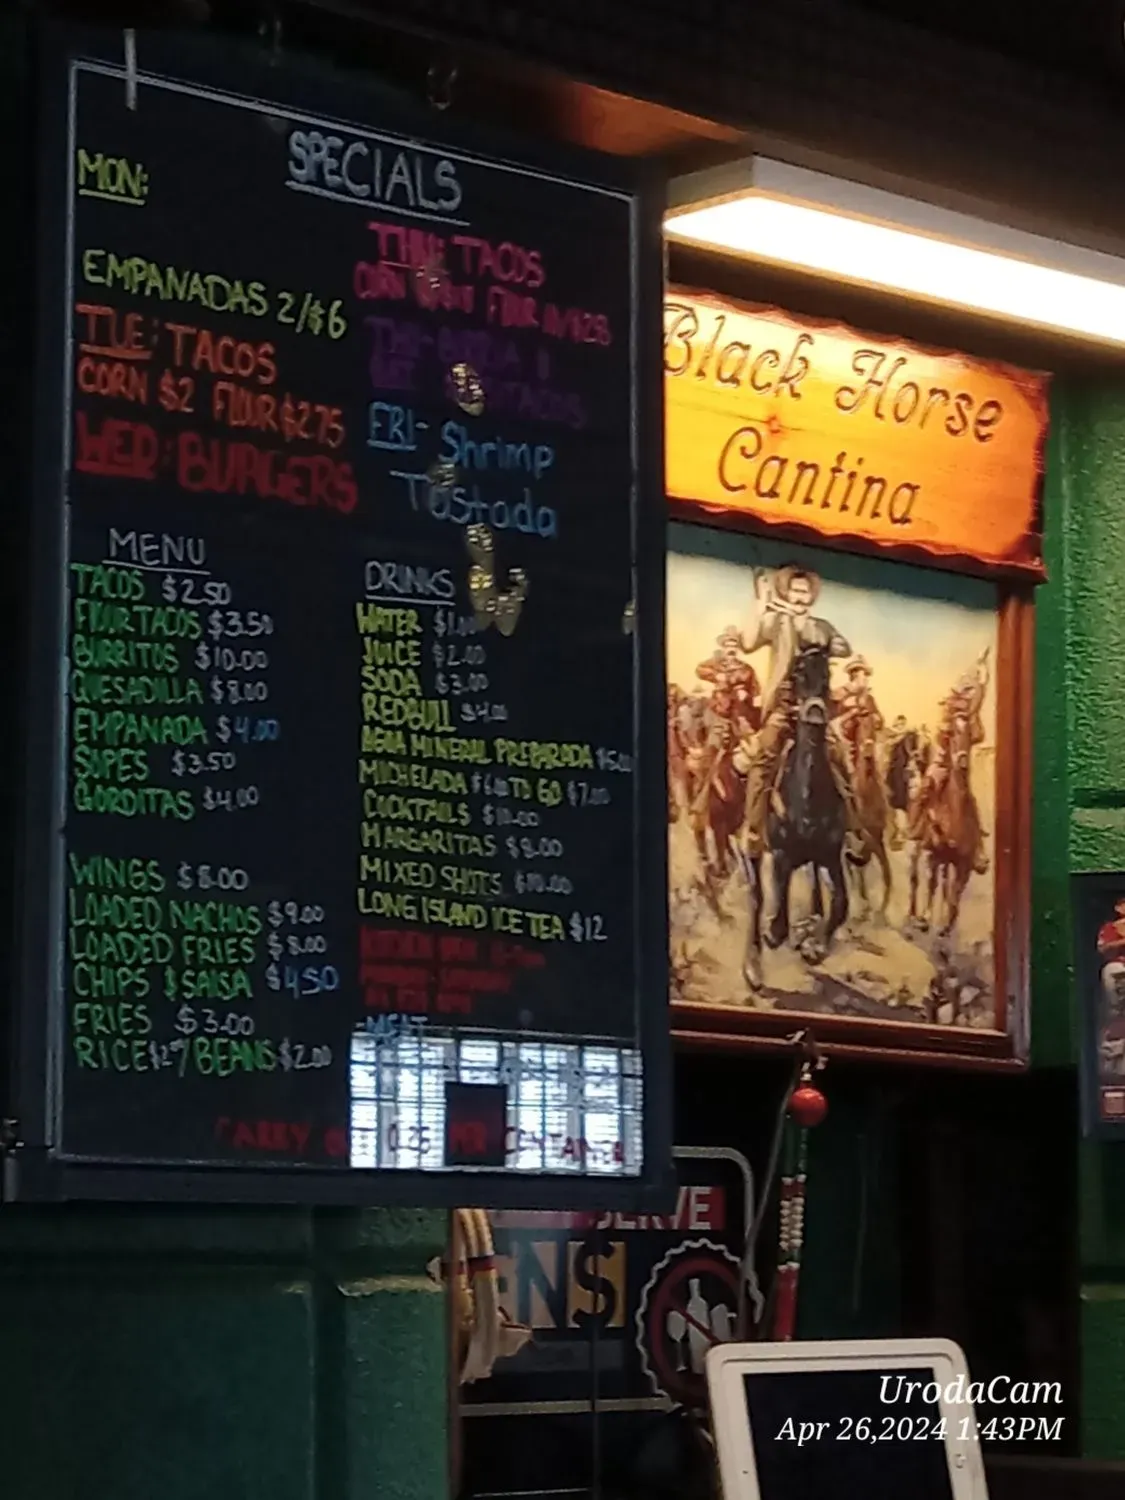 SPECIALS
MON:
EMPANADAS 2/$6
TUE: TACOS
CORN $2 FLOUR $2.75
WED: BURGERS
THU: TACOS
CORN FLOUR
FRI- Shrimp
Tostada
MENU
TACOS $2.50
FLOUR TACOS $3.50
BURRITOS $10.00
QUESADILLA $8.00
EMPANADA $4.00
SOPES $3.50
GORDITAS $4.00
WINGS $8.00
LOADED NACHOS $9.00
LOADED FRIES $8.00
CHIPS & SALSA $4.50
FRIES $3.00
RICE / BEANS $2.00
DRINKS
WATER $1.00
JUICE $2.00
SODA $3.00
REDBULL $4.00
AGUA MINERAL PREPARADA $5.00
MICHELADA $6.00 TO GO $7.00
COCKTAILS $10.00
MARGARITAS $9.00
MIXED SHOTS $10.00
LONG ISLAND ICE TEA $12
-MEAT
CARRY 0.25 PER CONTAINER
Black Horse
Cantina
SERVE
UrodaCam
Apr 26,2024 1:43PM